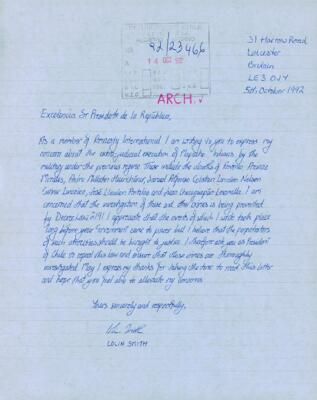 31 Harrow Road
Leicester
Britain
LE3 0JY
5th October 1992
92/23466
14 OCT 92
ARCH.
Excelencia Sr Presidente de la República,
As a member of Amnesty International I am writing to you to express my
concern about the extra judicial execution of Mapuche Indians by the
military under the previous regime. These include the deaths of
concerned that the investigation of these and other crimes is being prevented
by Decree Law 2191. I appreciate that the events of which I write took place
long before your government came to power but I believe that the perpetrators
of such atrocities should be brought to justice. I therefore ask you as President
of Chile to repeal this law and ensure that these crimes are thoroughly
investigated. May I express my thanks for taking the time to read this letter
and hope that you feel able to alleviate my concerns.
Yours sincerely and respectfully,
COLIN SMITH